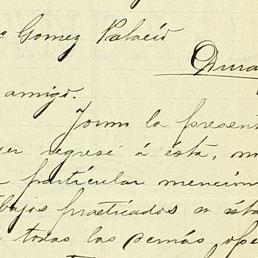 Gomez Palacio
Dura
amigo.
la present
er regresé á ésta, m
particular mención
bajos practicados a ésta
todas las demás ope